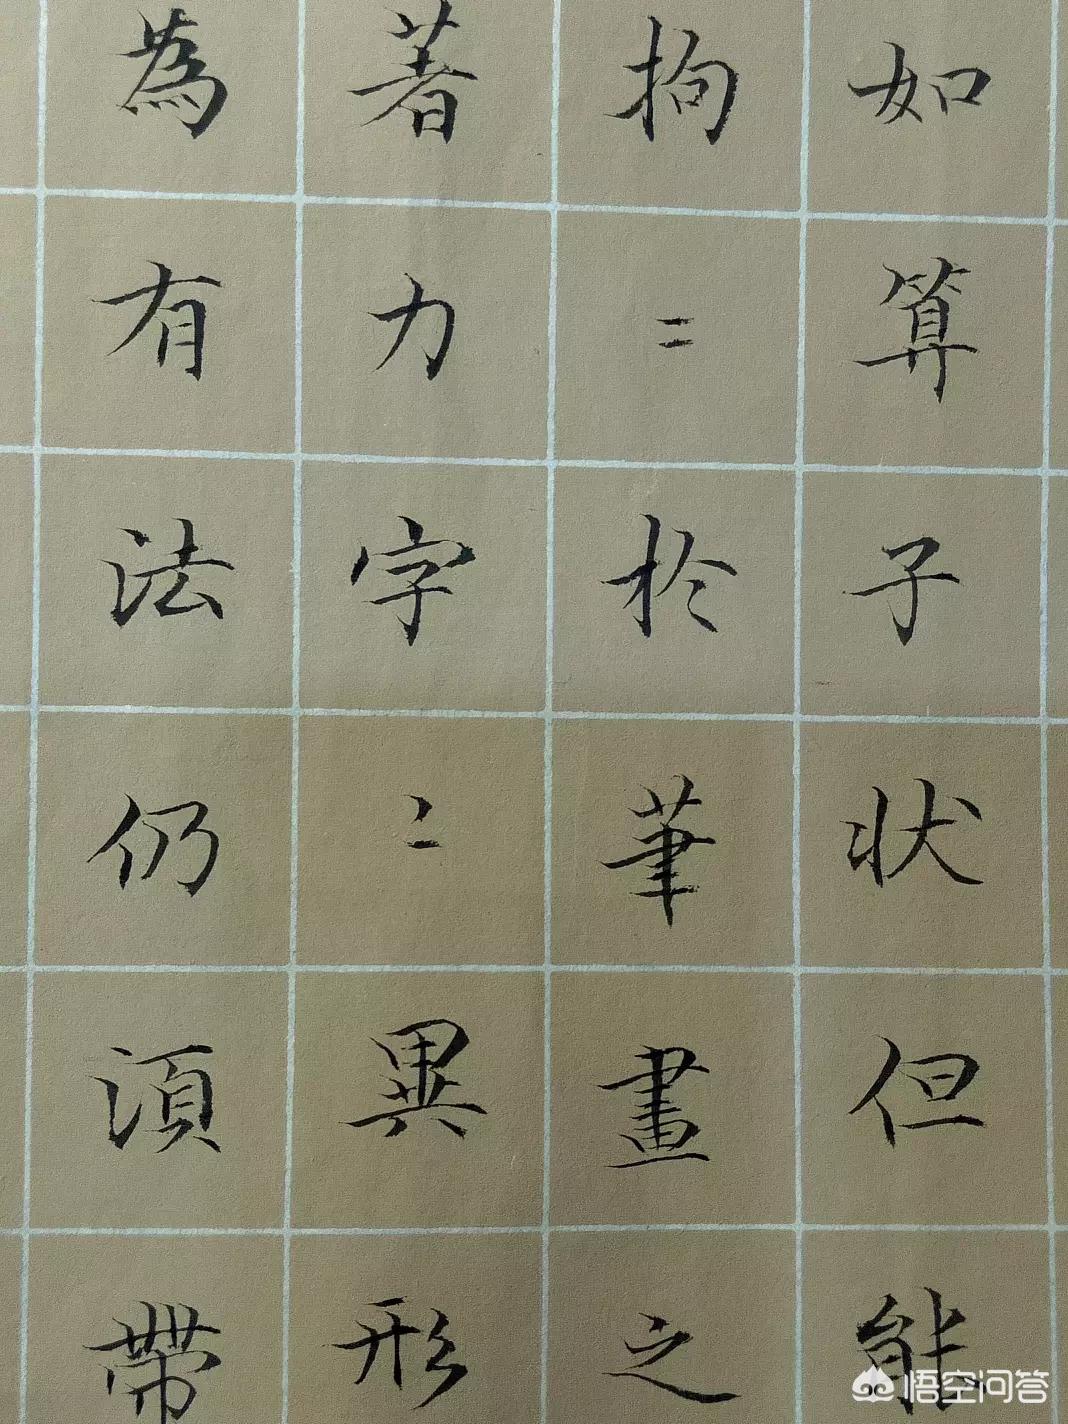 如算子状但能
拘〻於筆畫之
著力字〻異形
為有法仍須帶
悟空问答